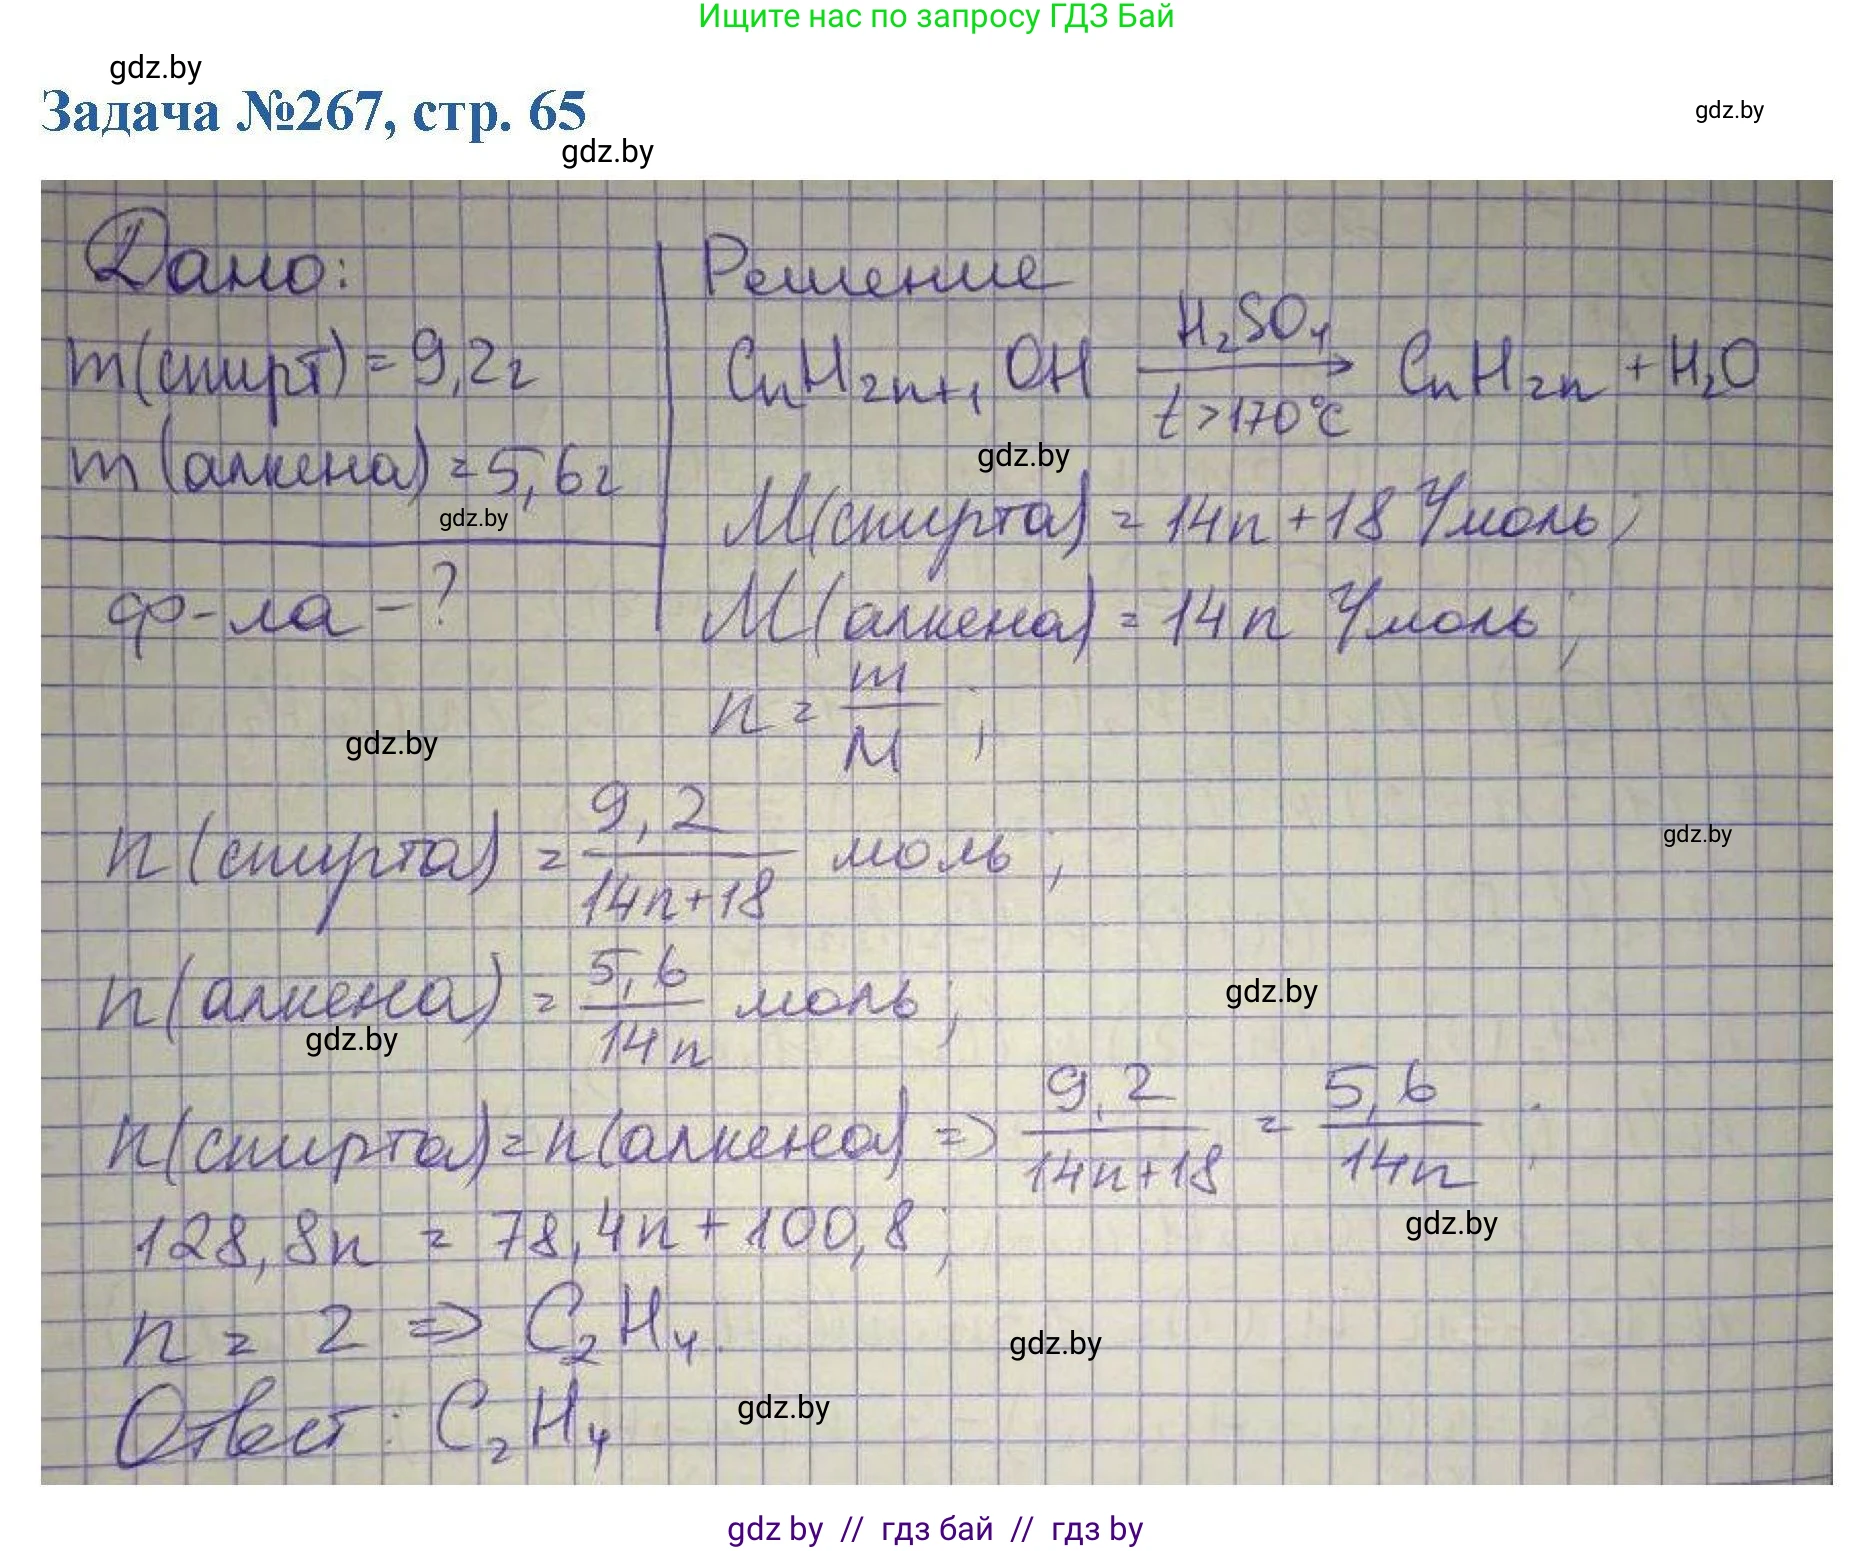 Ищите нас по запросу ГДЗ Бай
gdz.by
Задача №267, стр. 65
gdz.by
gdz.by
Дано:
m(спирт) = 9,2г
m(алкена) = 5,6г
gdz.by
ф-ла - ?
Решение
CnH2n+1OH H2SO4 t>170°C → CnH2n + H2O
gdz.by
M(спирта) = 14n+18 г/моль;
M(алкена) = 14n г/моль;
n = m/M;
gdz.by
n(спирта) = 9,2/14n+18 моль;
gdz.by
n(алкена) = 5,6/14n моль;
gdz.by
gdz.by
n(спирта) = n(алкена) => 9,2/14n+18 = 5,6/14n;
gdz.by
128,8n = 78,4n + 100,8;
n = 2 => C2H4.
gdz.by
Ответ: C2H4
gdz.by
gdz by // гдз бай // гдз by